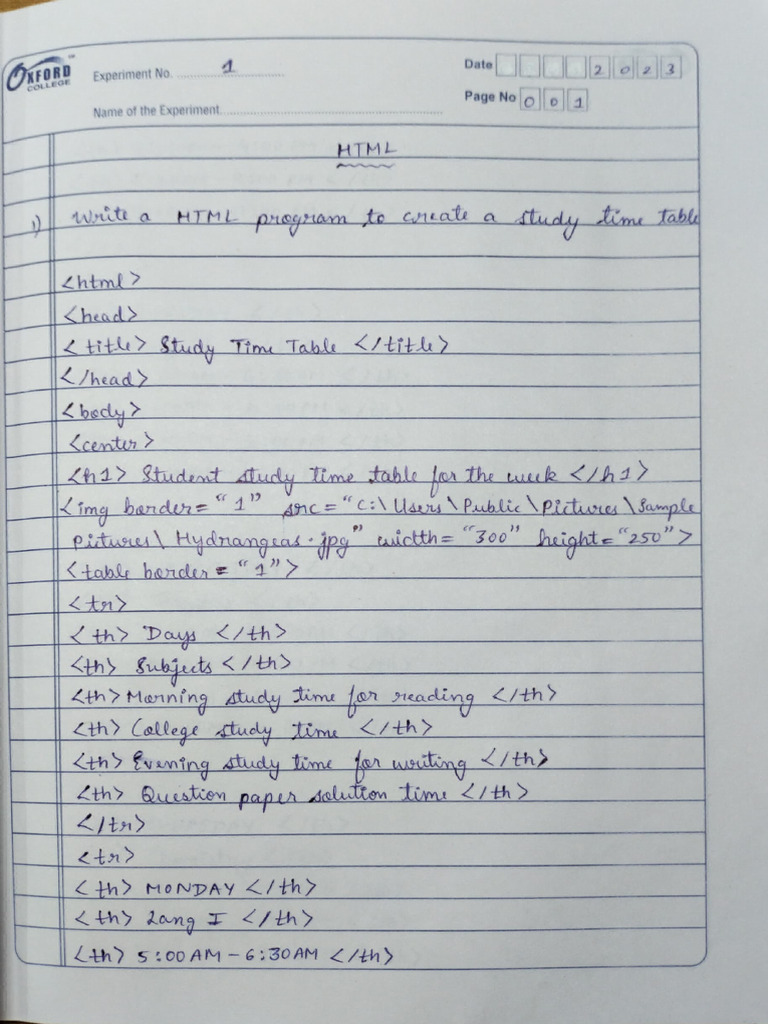 OXFORD COLLEGE
Experiment No. 1
Date 2023
Name of the Experiment
Page No 001
HTML
1) Write a HTML program to create a study time table
<html>
<head>
<title> Study Time Table </title>
</head>
<body>
<center>
<h1> Student study time table for the week </h1>
<img border= "1" src = "C:\Users\Public\Pictures\Sample
Pictures\ Hydrangeas.jpg" width= "300" height= "250">
<table border = "1">
<tr>
<th> Days </th>
<th> Subjects </th>
<th> Morning study time for reading </th>
<th> College study time </th>
<th> Evening study time for writing </th>
<th> Question paper solution time </th>
</tr>
<tr>
<th> MONDAY </th>
<th> Lang I </th>
<th> 5:00AM - 6:30AM </th>